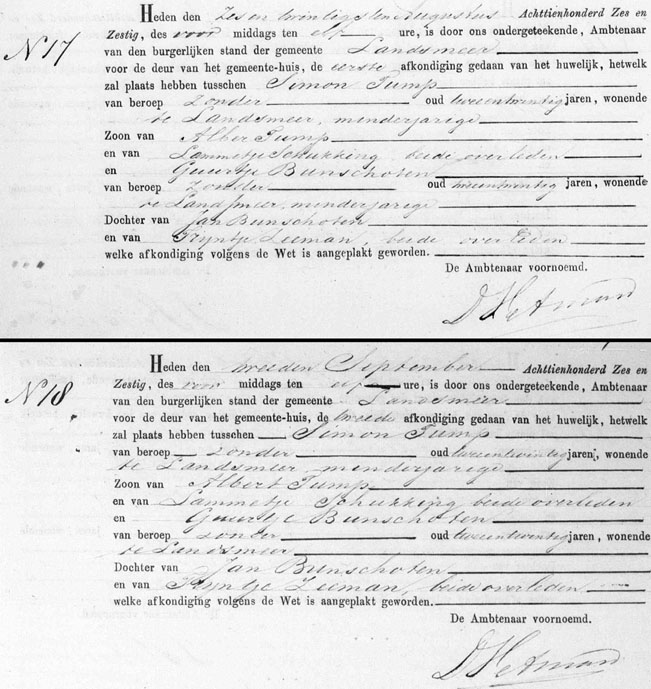 N 17
Heden den Zes en twintigsten Augustus Achttienhonderd Zes en
Zestig, des voor middags ten elf ure, is door ons ondergeteekende, Ambtenaar
van den burgerlijken stand der gemeente Landsmeer
voor de deur van het gemeente-huis, de eerste afkondiging gedaan van het huwelijk, hetwelk
zal plaats hebben tusschen Simon Tump
van beroep zonder oud tweeentwintig jaren, wonende
te Landsmeer, minderjarige
Zoon van Alber Tump
en van Lammetje Schukking, beide overleden
en Guurtje Bunschoten
van beroep zonder oud tweeentwintig jaren, wonende
te Landsmeer, minderjarige
Dochter van Jan Bunschoten
en van Trijntje Leeman, beide overleden
welke afkondiging volgens de Wet is aangeplakt geworden.
De Ambtenaar voornoemd.
N 18
Heden den tweeden September Achttienhonderd Zes en
Zestig, des voor middags ten elf ure, is door ons ondergeteekende, Ambtenaar
van den burgerlijken stand der gemeente Landsmeer
voor de deur van het gemeente-huis, de tweede afkondiging gedaan van het huwelijk, hetwelk
zal plaats hebben tusschen Simon Tump
van beroep zonder oud tweeentwintig jaren, wonende
te Landsmeer, minderjarige
Zoon van Albert Tump
en van Lammetje Schukking beide overleden
en Guurtje Bunschoten
van beroep zonder oud tweeentwintig jaren, wonende
te Landsmeer
Dochter van Jan Bunschoten
en van Trijntje Leeman, beide overleden
welke afkondiging volgens de Wet is aangeplakt geworden.
De Ambtenaar voornoemd.